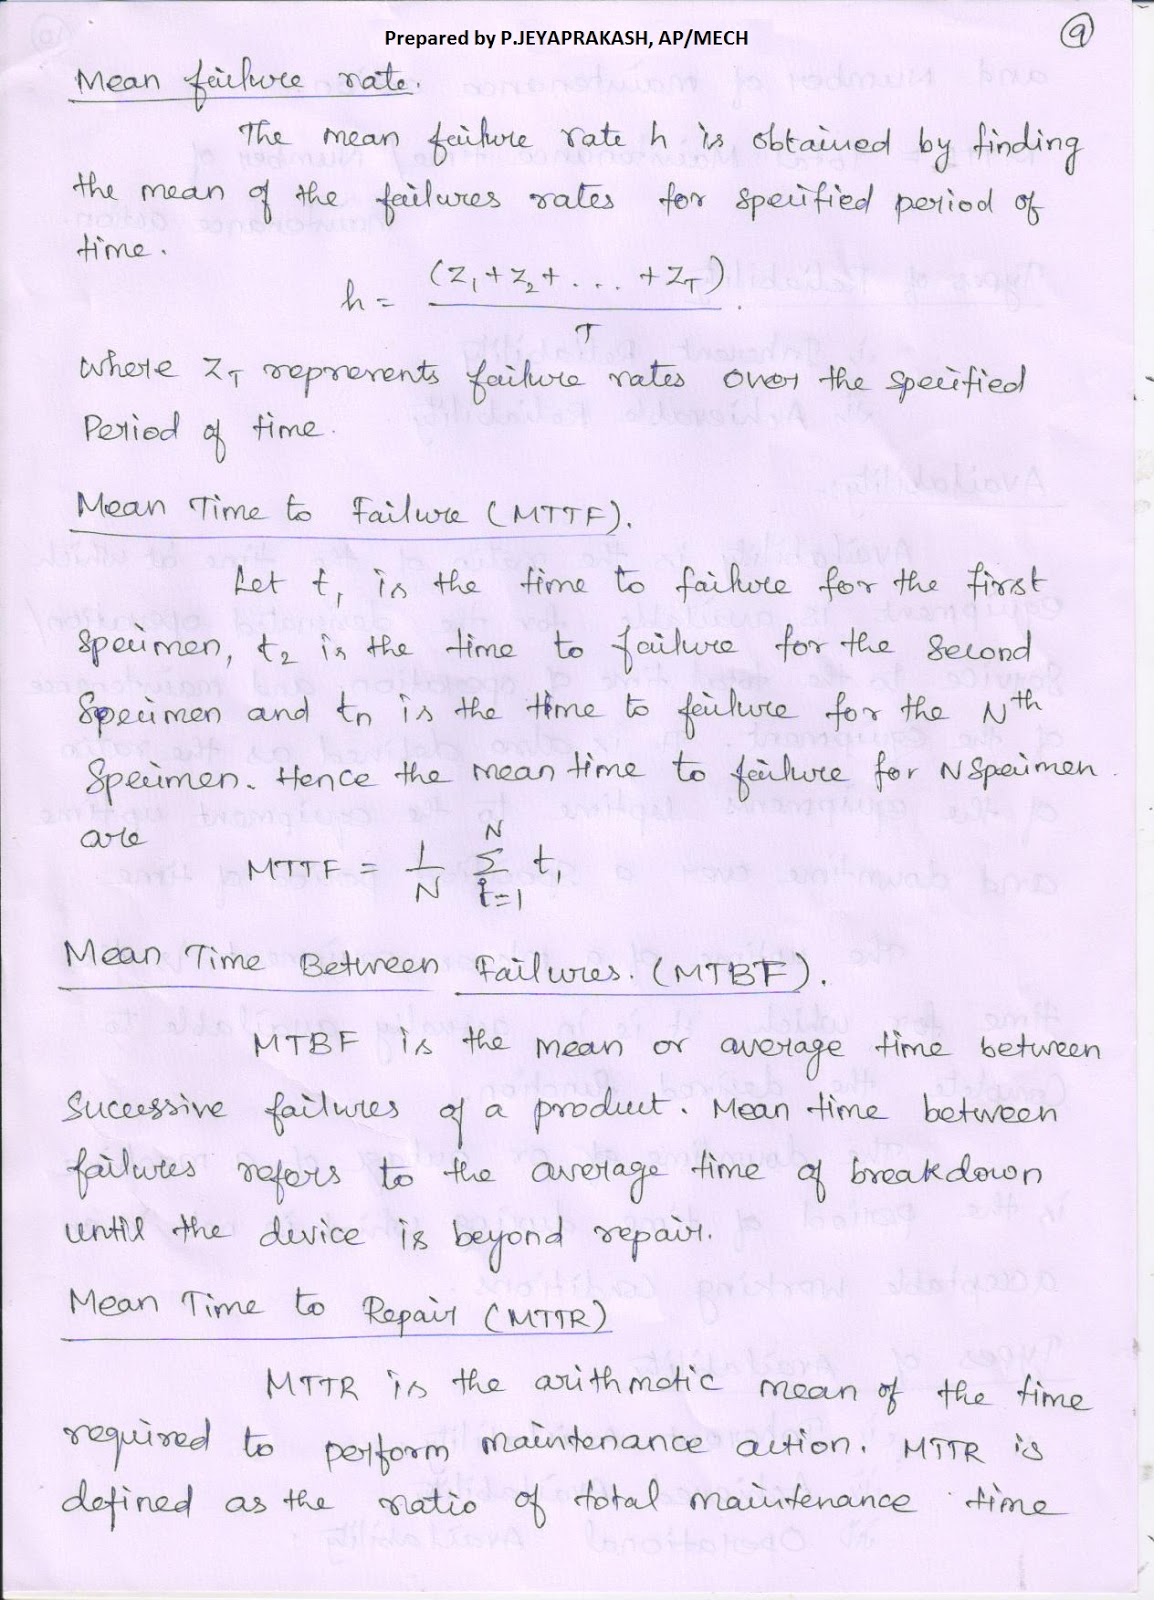 Prepared by P.JEYAPRAKASH, AP/MECH
9
Mean failure rate.
The mean failure rate h is obtained by finding
the mean of the failures rates for specified period of
time.
h = (Z₁ + Z₂ + . . . + Z_T) / T
where Z_T represents failure rates over the specified
Period of time.
Mean Time to Failure (MTTF).
Let t₁ is the time to failure for the first
specimen, t₂ is the time to failure for the second
specimen and tn is the time to failure for the Nth
specimen. Hence the mean time to failure for N specimen
are
MTTF = 1/N Σ t₁
N
t=1
Mean Time Between Failures. (MTBF).
MTBF is the mean or average time between
successive failures of a product. Mean time between
failures refers to the average time of breakdown
until the device is beyond repair.
Mean Time to Repair (MTTR)
MTTR is the arithmetic mean of the time
required to perform maintenance action. MTTR is
defined as the ratio of total maintenance time